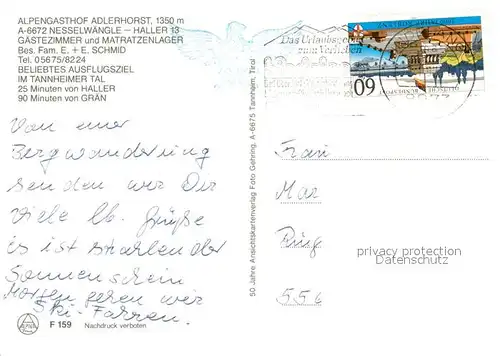 ALPENGASTHOF ADLERHORST, 1350 m
A-6672 NESSELWÄNGLE - HALLER 13
GÄSTEZIMMER und MATRATZENLAGER
Bes. Fam. E. + E. SCHMID
Tel. 05675/8224
BELIEBTES AUSFLUGSZIEL
IM TANNHEIMER TAL
25 Minuten von HALLER
90 Minuten von GRÄN
Von einer
Bergwanderung
senden wir Dir
viele lb. Grüße
es ist strahlender
Sonnenschein
Morgen gehen wir
Ski-Fahren.
F 159
Nachdruck verboten
50 Jahre Ansichtskartenverlag Foto Gehring, A-6675 Tannheim, Tirol
Das Urlaubsgebiet
zum Verlieben
60
DEUTSCHE
BUNDESPOST
Frau
Mar
Ring
556
privacy protection
Datenschutz